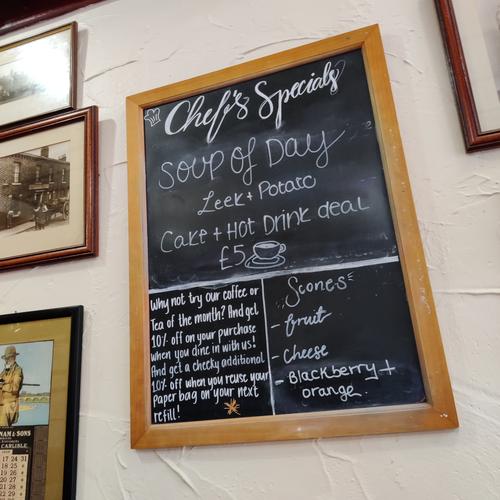 Chef's Specials
Soup Of Day
Leek + Potato
Cake + Hot Drink deal
£5
Why not try our coffee or
Tea of the month? And get
10% off on your purchase
when you dine in with us!
And get a cheeky additional
10% off when you reuse your
paper bag on your next
refill!
Scones
- fruit
- Cheese
- Blackberry +
orange.
NAM & SONS
CARLISLE.
17 24 31